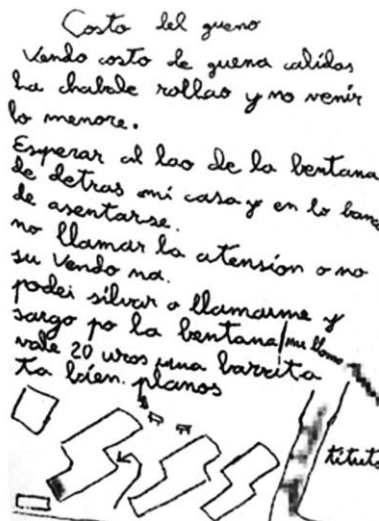 Costo del gueno
Vendo costo de guena calidas
ha chabale rollao y no venir
lo menore.
Esperar al lao de la bentana
de detras mi casa y en lo banc
de asentarse.
no llamar la atension o no
su vendo na.
podei silvar o llamarme y
sargo po la bentana / mu llamo
vale 20 uros una barrita
ta bien. planos
tituto